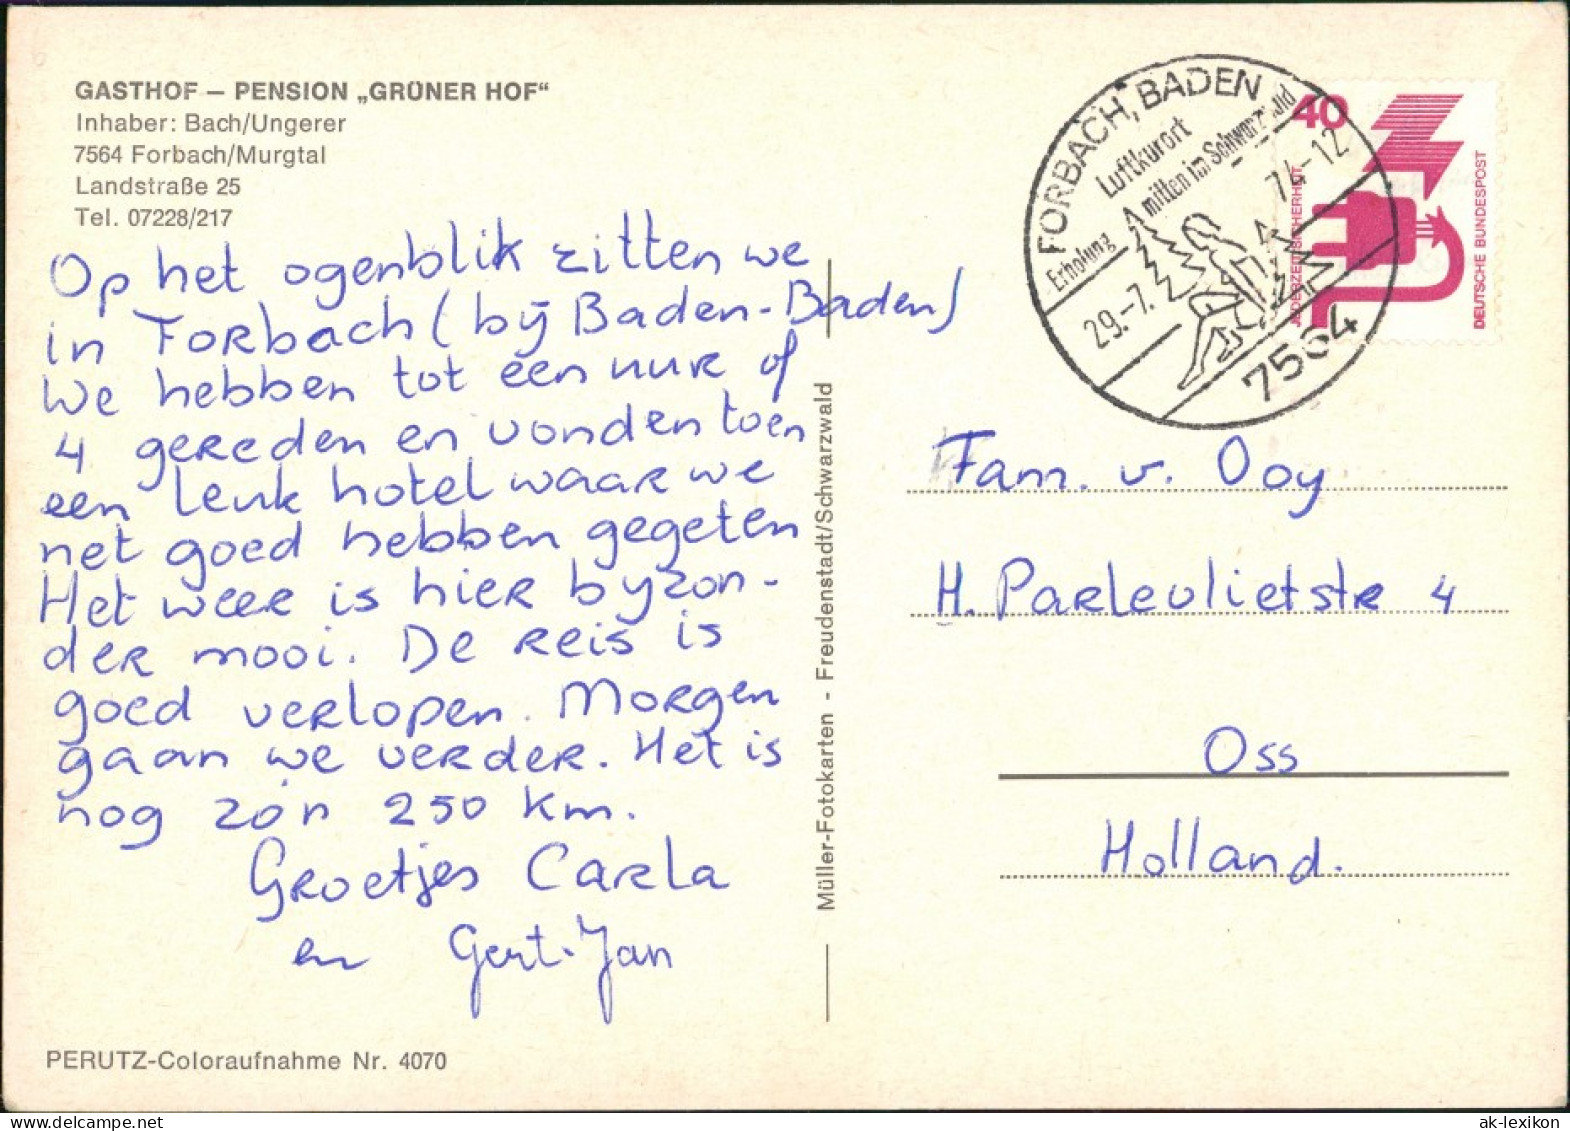 GASTHOF – PENSION „GRÜNER HOF“
Inhaber: Bach/Ungerer
7564 Forbach/Murgtal
Landstraße 25
Tel. 07228/217
Op het ogenblik zitten we
in Forbach (bij Baden-Baden)
We hebben tot een uur of
4 gereden en vonden toen
een leuk hotel waar we
net goed hebben gegeten
Het weer is hier byzon-
der mooi. De reis is
goed verlopen. Morgen
gaan we verder. Het is
nog zo'n 250 km.
Groetjes Carla
en Gert-Jan
PERUTZ-Coloraufnahme Nr. 4070
Müller-Fotokarten - Freudenstadt/Schwarzwald
FORBACH, BADEN
Luftkurort
mitten im Schwarzwald
Erholung
29.-7. 74-12
7564
40
JEDERZEIT SICHERHEIT
DEUTSCHE BUNDESPOST
Fam. v. Ooy
H. Parlevlietstr 4
Oss
Holland.
ak-lexikon